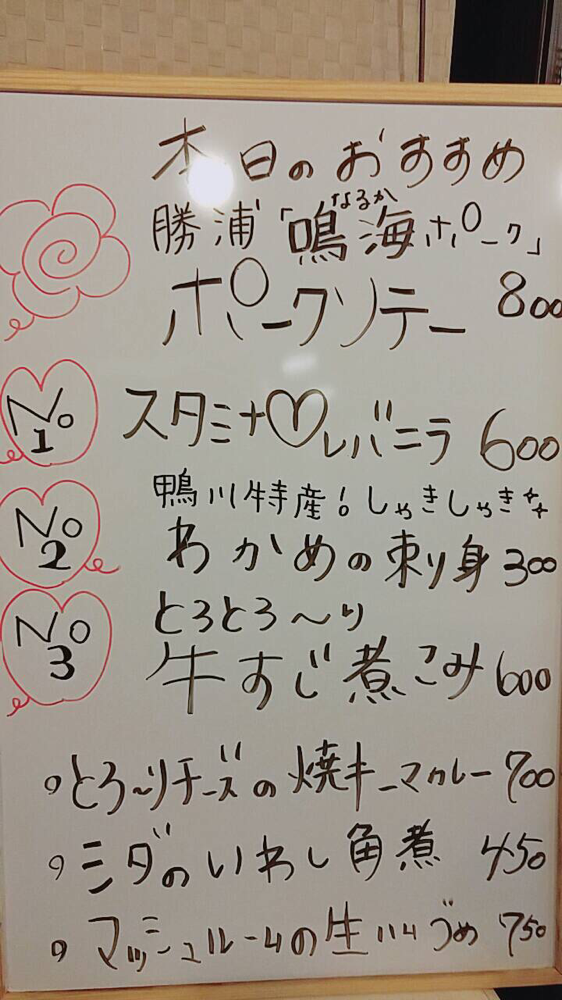 本日のおすすめ
なるか
勝浦「鳴海ポーク」
ポークソテー 800
No1 スタミナ♡レバニラ 600
鴨川特産!しゃきしゃき
No2 わかめの刺り身 300
とろとろ〜り
No3 牛すじ煮こみ 600
とろ〜りチーズの焼キーマカレー 700
ミダのいわし角煮 450
マッシュルームの生ハムづめ 750